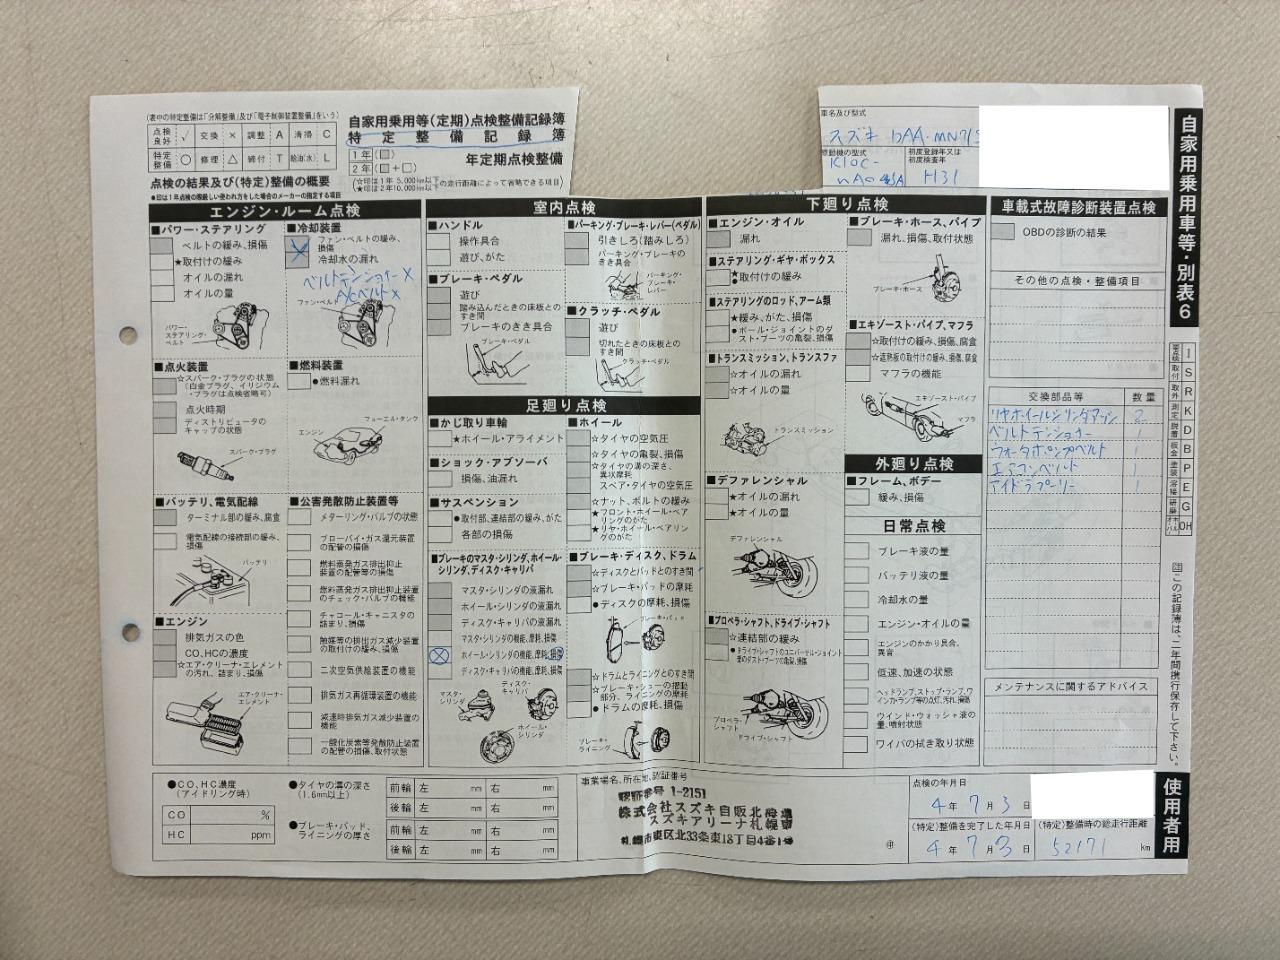 (表中の特定整備は「分解整備」及び「電子制御装置整備」をいう)
点検良好 √ 交換 × 調整 A 清掃 C
特定整備 ○ 修理 △ 締付 T 給油(水) L
自家用乗用等(定期)点検整備記録簿
特定整備記録簿
1年(□)
2年(□+□)
年定期点検整備
(☆印は1年 5,000km以下
★印は2年10,000km以下の走行距離によって省略できる項目)
点検の結果及び(特定)整備の概要
●印は1年点検の際厳しい使われ方をした場合のメーカーの指定する項目
車名及び型式
スズキ DAA-MN71S
原動機の型式
K10C-
初度登録年又は
初度検査年
H31
自家用乗用車等・別表6
エンジン・ルーム点検
■パワー・ステアリング
ベルトの緩み、損傷
★取付けの緩み
オイルの漏れ
オイルの量
パワー・
ステアリング・
ベルト
■冷却装置
ファン・ベルトの緩み、
損傷
冷却水の漏れ
ベルトテンショナー×
A/Cベルト×
ファン・ベルト
■点火装置
☆スパーク・プラグの状態
(白金プラグ、イリジウム
・プラグは点検省略可)
点火時期
ディストリビュータの
キャップの状態
スパーク・プラグ
■燃料装置
●燃料漏れ
フューエル・タンク
エンジン
■バッテリ、電気配線
ターミナル部の緩み、腐食
電気配線の接続部の緩み、
損傷
バッテリ
■公害発散防止装置等
メターリング・バルブの状態
ブローバイ・ガス還元装置
の配管の損傷
燃料蒸発ガス排出抑止
装置の配管等の損傷
燃料蒸発ガス排出抑止装置
のチェック・バルブの機能
チャコール・キャニスタの
詰まり、損傷
触媒等の排出ガス減少装置
の取付けの緩み、損傷
二次空気供給装置の機能
排気ガス再循環装置の機能
減速時排気ガス減少装置の
機能
一酸化炭素等発散防止装置
の配管の損傷、取付状態
■エンジン
排気ガスの色
CO、HCの濃度
☆エア・クリーナ・エレメント
の汚れ、詰まり、損傷
エア・クリーナ・
エレメント
室内点検
■ハンドル
操作具合
遊び、がた
■ブレーキ・ペダル
遊び
踏み込んだときの床板との
すき間
ブレーキのきき具合
ブレーキ・ペダル
■パーキング・ブレーキ・レバー(ペダル)
引きしろ(踏みしろ)
パーキング・ブレーキの
きき具合
パーキング・
ブレーキ・
レバー
■クラッチ・ペダル
遊び
切れたときの床板との
すき間
クラッチ・ペダル
足廻り点検
■かじ取り車輪
★ホイール・アライメント
■ショック・アブソーバ
損傷、油漏れ
■サスペンション
●取付部、連結部の緩み、がた
各部の損傷
■ブレーキのマスタ・シリンダ、ホイール・
シリンダ、ディスク・キャリパ
マスタ・シリンダの液漏れ
ホイール・シリンダの液漏れ
ディスク・キャリパの液漏れ
マスタ・シリンダの機能、摩耗、損傷
ホイール・シリンダの機能、摩耗、損傷
ディスク・キャリパの機能、摩耗、損傷
マスタ・
シリンダ
ディスク・
キャリパ
ホイール・
シリンダ
■ホイール
☆タイヤの空気圧
☆タイヤの亀裂、損傷
☆タイヤの溝の深さ、
異状摩耗
スペア・タイヤの空気圧
☆ナット、ボルトの緩み
★フロント・ホイール・ベア
リングのがた
★リヤ・ホイール・ベアリン
グのがた
■ブレーキ・ディスク、ドラム
☆ディスクとパッドとのすき間
☆ブレーキ・パッドの摩耗
●ディスクの摩耗、損傷
ブレーキ・パッド
☆ドラムとライニングとのすき間
☆ブレーキ・シューの摺動
部分、ライニングの摩耗
●ドラムの摩耗、損傷
ブレーキ・
ライニング
下廻り点検
■エンジン・オイル
漏れ
■ステアリング・ギヤ・ボックス
★
●取付けの緩み
■ステアリングのロッド、アーム類
★緩み、がた、損傷
●ボール・ジョイントのダ
スト・ブーツの亀裂、損傷
■トランスミッション、トランスファ
☆オイルの漏れ
☆オイルの量
トランスミッション
■デファレンシャル
★オイルの漏れ
★オイルの量
デファレンシャル
■プロペラ・シャフト、ドライブ・シャフト
☆連結部の緩み
●ドライブ・シャフトのユニバーサル・ジョイント
部のダスト・ブーツの亀裂、損傷
プロペラ・
シャフト
ドライブ・シャフト
■ブレーキ・ホース、パイプ
漏れ、損傷、取付状態
ブレーキ・ホース
■エキゾースト・パイプ、マフラ
☆取付けの緩み、損傷、腐食
☆遮熱板の取付けの緩み、損傷、腐食
マフラの機能
エキゾースト・パイプ
マフラ
外廻り点検
■フレーム、ボデー
緩み、損傷
日常点検
ブレーキ液の量
バッテリ液の量
冷却水の量
エンジン・オイルの量
エンジンのかかり具合、
異音
低速、加速の状態
ヘッドランプ、ストップ・ランプ、ウ
インカ・ランプ等の点灯、汚れ、損傷
ウインド・ウォッシャ液の
量、噴射状態
ワイパの拭き取り状態
車載式故障診断装置点検
OBDの診断の結果
その他の点検・整備項目
交換部品等 数量
リヤホイールシリンダアッシ 2
ベルトテンショナー 1
ウォータポンプベルト 1
エアコンベルト 1
アイドラプーリー 1
メンテナンスに関するアドバイス
I
取付 S
取外 R
測定 K
脱着 D
板金 B
塗装 P
溶接 E
研磨 G
OH
注この記録簿は、二年間携行保存して下さい。
使用者用
●CO、HC濃度
(アイドリング時)
CO %
HC ppm
●タイヤの溝の深さ
(1.6mm以上)
前輪 左 mm 右 mm
後輪 左 mm 右 mm
●ブレーキ・パッド、
ライニングの厚さ
前輪 左 mm 右 mm
後輪 左 mm 右 mm
事業場名、所在地、認証番号
認証番号 1-2151
株式会社スズキ自販北海道
スズキアリーナ札幌東
札幌市東区北33条東18丁目4番1号
㊞
点検の年月日
4年 7月 3日
(特定)整備を完了した年月日
4年 7月 3日
(特定)整備時の総走行距離
52171 km